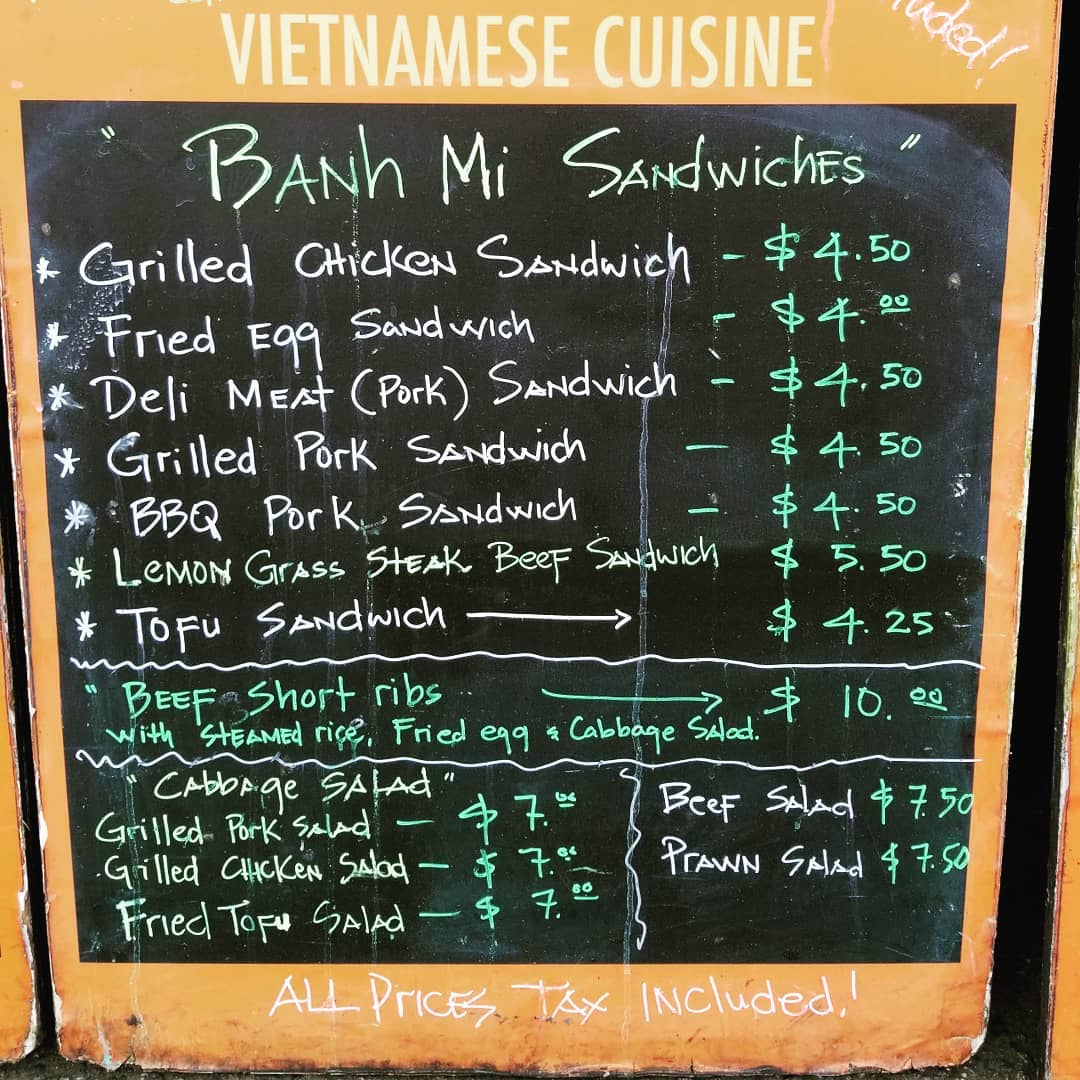 included!
VIETNAMESE CUISINE
" BANh Mi SANdwichES "
* Grilled CHicKEN SANDwich - $ 4.50
* Fried Egg Sandwich - $ 4.00
* Deli MEAT (Pork) SANDwich - $ 4.50
* Grilled Pork SANDwich — $ 4.50
* BBQ Pork SANDwich — $ 4.50
* LEMON GRASS STEAK BEEF SANdwich $ 5.50
* TOFU SANDwich → $ 4.25
" BEEF Short ribs → $ 10.00
with STEAMED rice, Fried egg & Cabbage Salad.
" CAbbAge SALAd "
Grilled Pork SALAD — $ 7.00
Grilled CHICKEN Salad — $ 7.00
Fried TOFU SALAD — $ 7.00
BEEF SALAD $ 7.50
PRAWN SALAd $ 7.50
ALL PricES TAX INCluded!